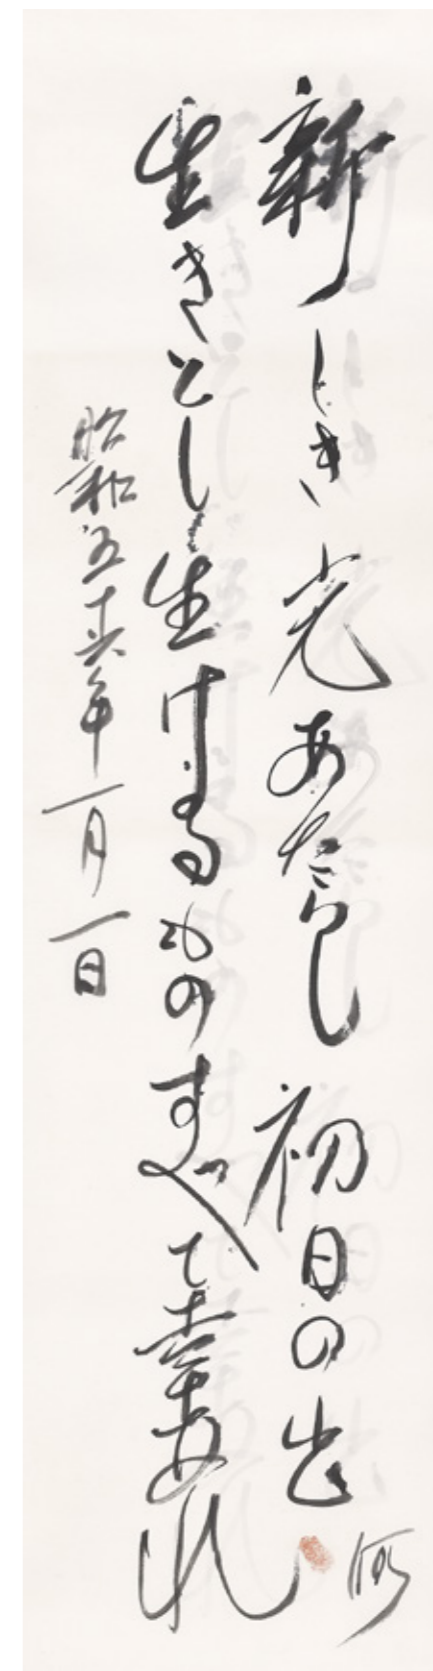 新しき光あたらし初日の出
生きとし生けるものすべて幸あれ
昭和五十六年一月一日